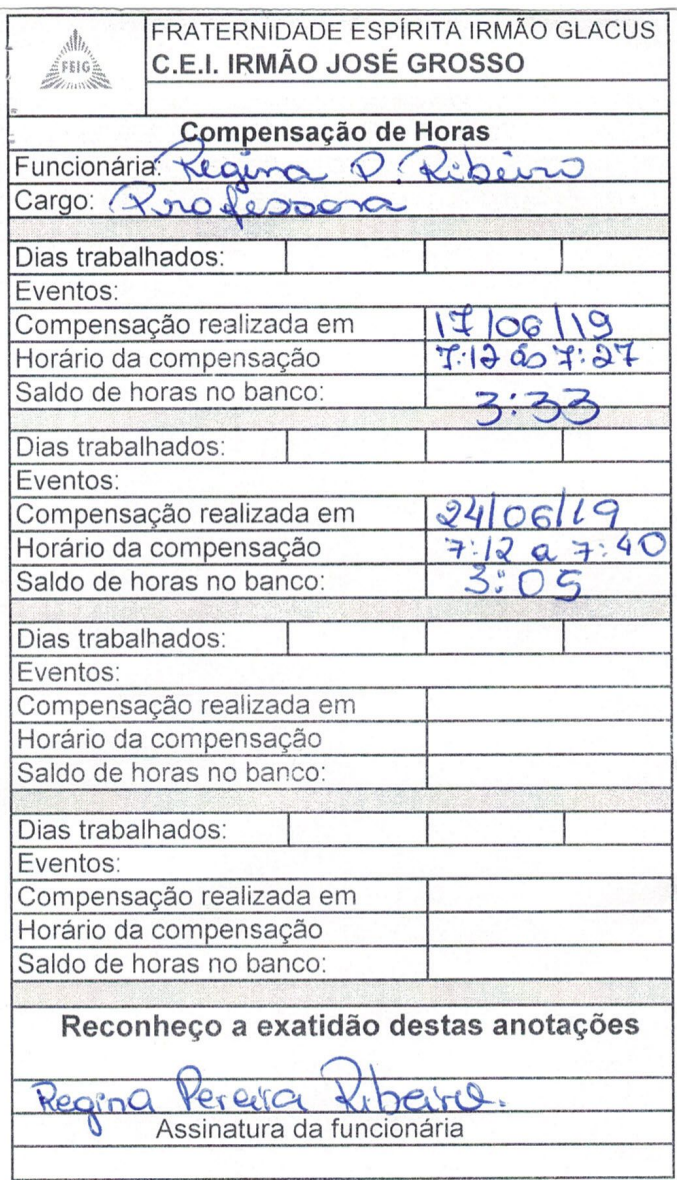 FRATERNIDADE ESPÍRITA IRMÃO GLACUS
FEIG
C.E.I. IRMÃO JOSÉ GROSSO
Compensação de Horas
Funcionária: Regina P. Ribeiro
Cargo: Professora
Dias trabalhados:
Eventos:
Compensação realizada em 17/06/19
Horário da compensação 7:12 às 7:27
Saldo de horas no banco: 3:33
Dias trabalhados:
Eventos:
Compensação realizada em 24/06/19
Horário da compensação 7:12 a 7:40
Saldo de horas no banco: 3:05
Dias trabalhados:
Eventos:
Compensação realizada em
Horário da compensação
Saldo de horas no banco:
Dias trabalhados:
Eventos:
Compensação realizada em
Horário da compensação
Saldo de horas no banco:
Reconheço a exatidão destas anotações
Regina Pereira Ribeiro.
Assinatura da funcionária